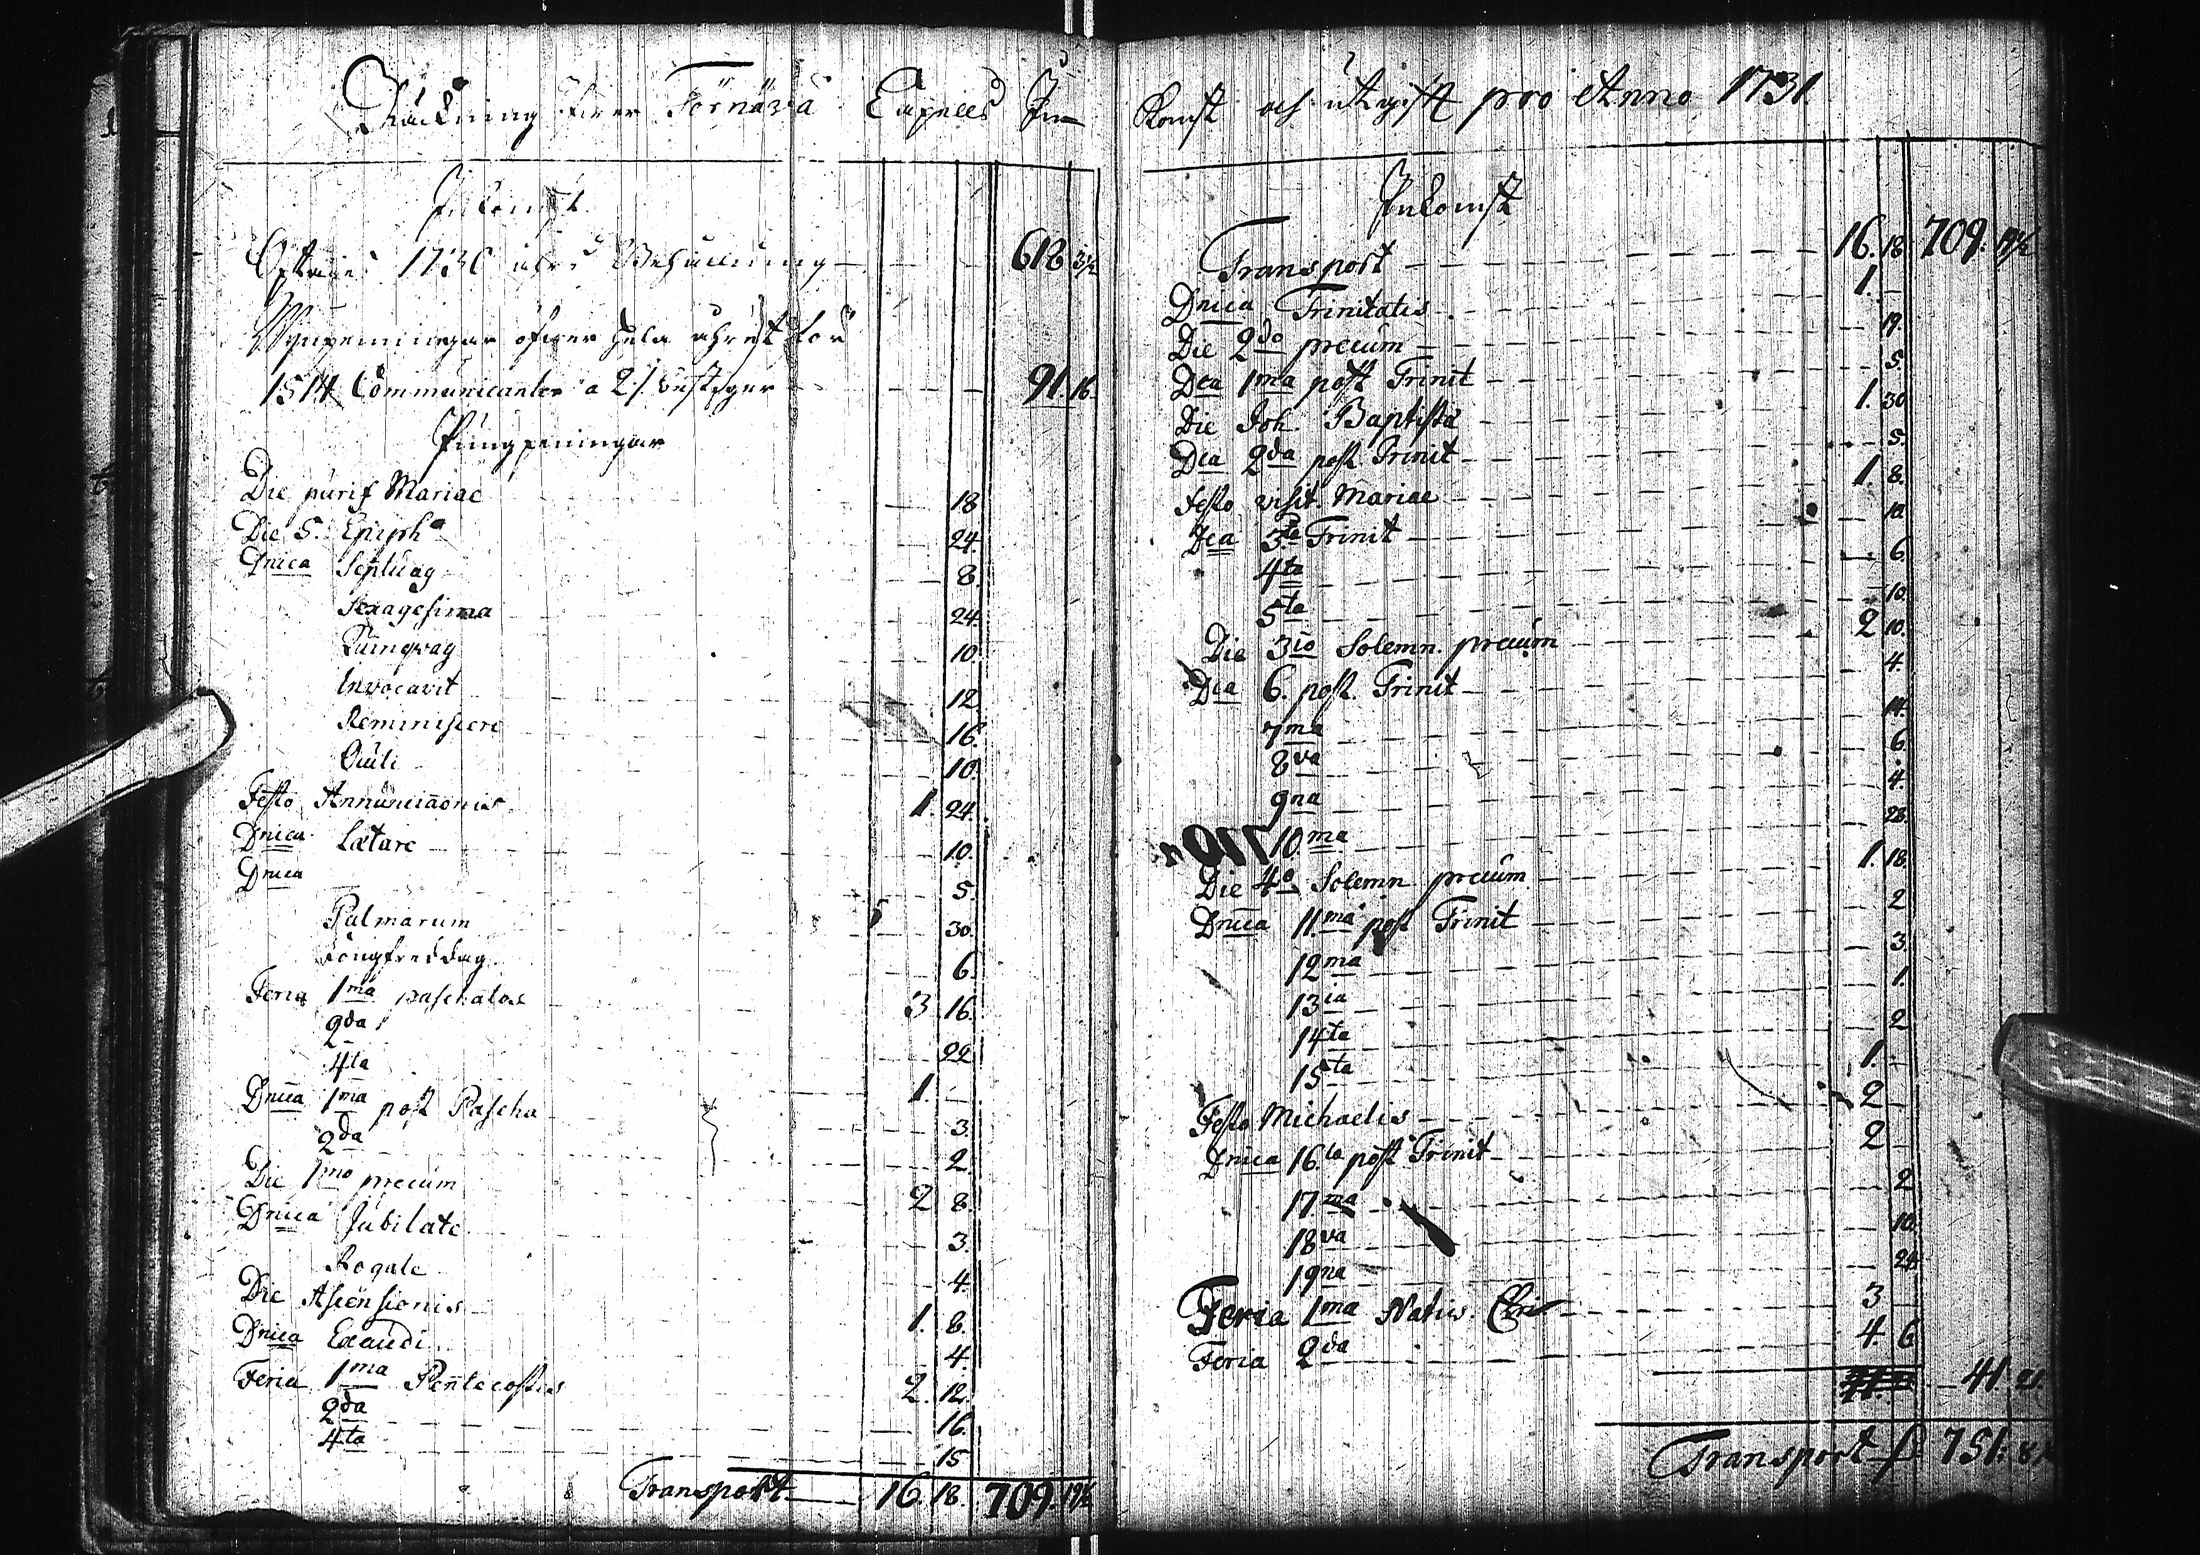 Räckning öfver Törnäva Capells In
Inkomst
1730 åhrs Behållning 618. 3½
Wijnpenningar öfwer hela åhret för
1514 Communicanter a 2 91. 16.
Pungpeningar
Die purif Mariae 18
Die 5. Epiph 24.
Dnica Septuag 8.
Sexagesima 24.
Quinqvag 10.
Invocavit 12
Reminiscere 16.
Oculi 10.
Festo Annunciaonis 1. 24.
Dnica Lætare 10.
Dnica 5.
Palmarum 30.
Långfreddag 6.
Feria 1ma paschatos 3. 16.
2da 22.
4ta 1. -
Dnica 1ma post Pascha 3.
2da 2.
Die 1mo precum 2 8.
Dnica Jubilate 3.
Rogate 4.
Die Ascensionis 1. 8.
Dnica Exaudi 4.
Feria 1ma Pentecostes 2. 12.
2da 16.
4ta 15
Transport 16. 18. 709. 19½
Komst och utgift pro Anno 1731
Inkomst
Transport 16. 18 709. 19½
Dnica Trinitatis 1. -
Die 2do precum 19.
Dca 1ma post Trinit 5.
Die Joh. Baptistæ 1. 30
Dca 2da post Trinit 5.
Festo visit. Mariae 1. 8.
Dca 3 Trinit 10
4ta 6.
5ta 10.
Die 3io Solemn. precum 2 10.
Dca 6. post Trinit 4.
7ma 14.
8va 6.
9na 4.
10ma 28.
Die 4o Solemn precum 1. 18.
Dnica 11.ma post Trinit 2
12ma 3.
13ia 1.
14ta 2
15ta 1. -
Festo Michaelis 2 -
Dnica 16.ta post Trinit 2 -
17ma 2
18va 10.
19na 24
Feria 1ma Nativ. Chri 3 -
Feria 2da 4. 6
41. 21.
Transport f 751. 8½